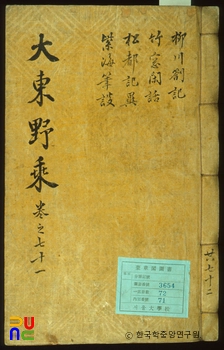 柳川劄記
竹窓閑話
松都記異
紫海筆談
大東野乘
卷之七十一
共七十二
3654
72
71
ⓒ 한국학중앙연구원